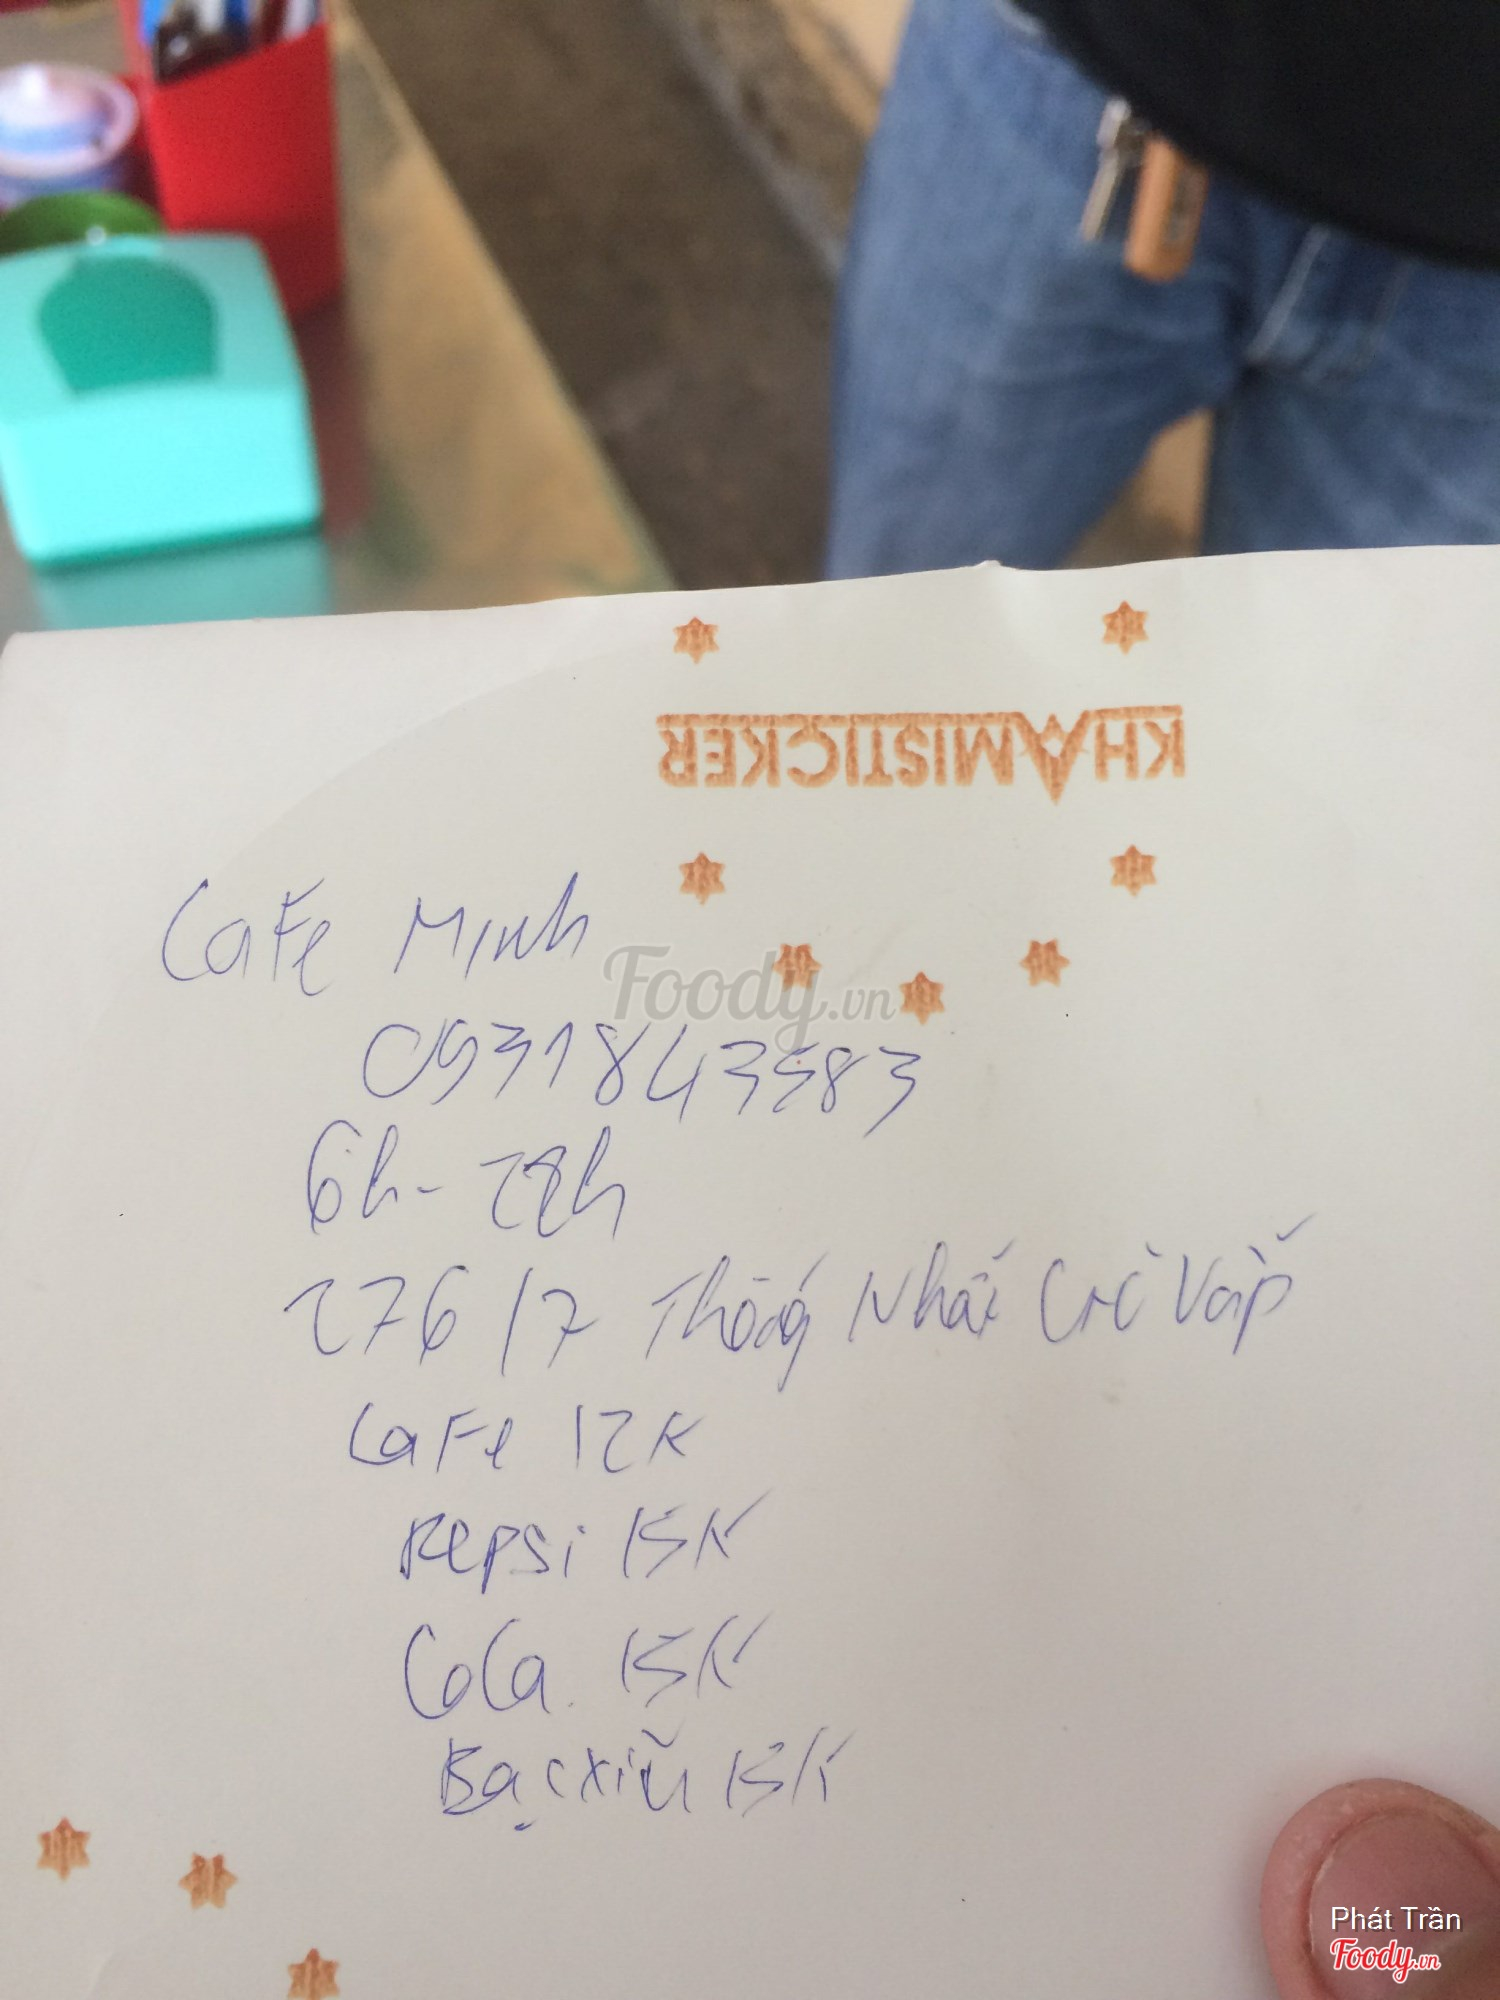 KHAMISTICKER
CaFe Minh
Foody.vn
0931843583
6h - 22h
276/7 Thống Nhất Gò Vấp
CaFe 12K
Pepsi 15K
CoCa 15K
Bạc xỉu 15K
Phát Trần
Foody.vn